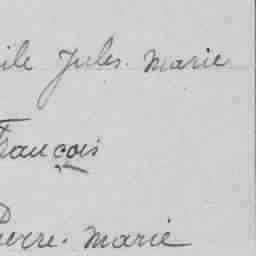 ile Jules. Marie
François
Pierre. Marie